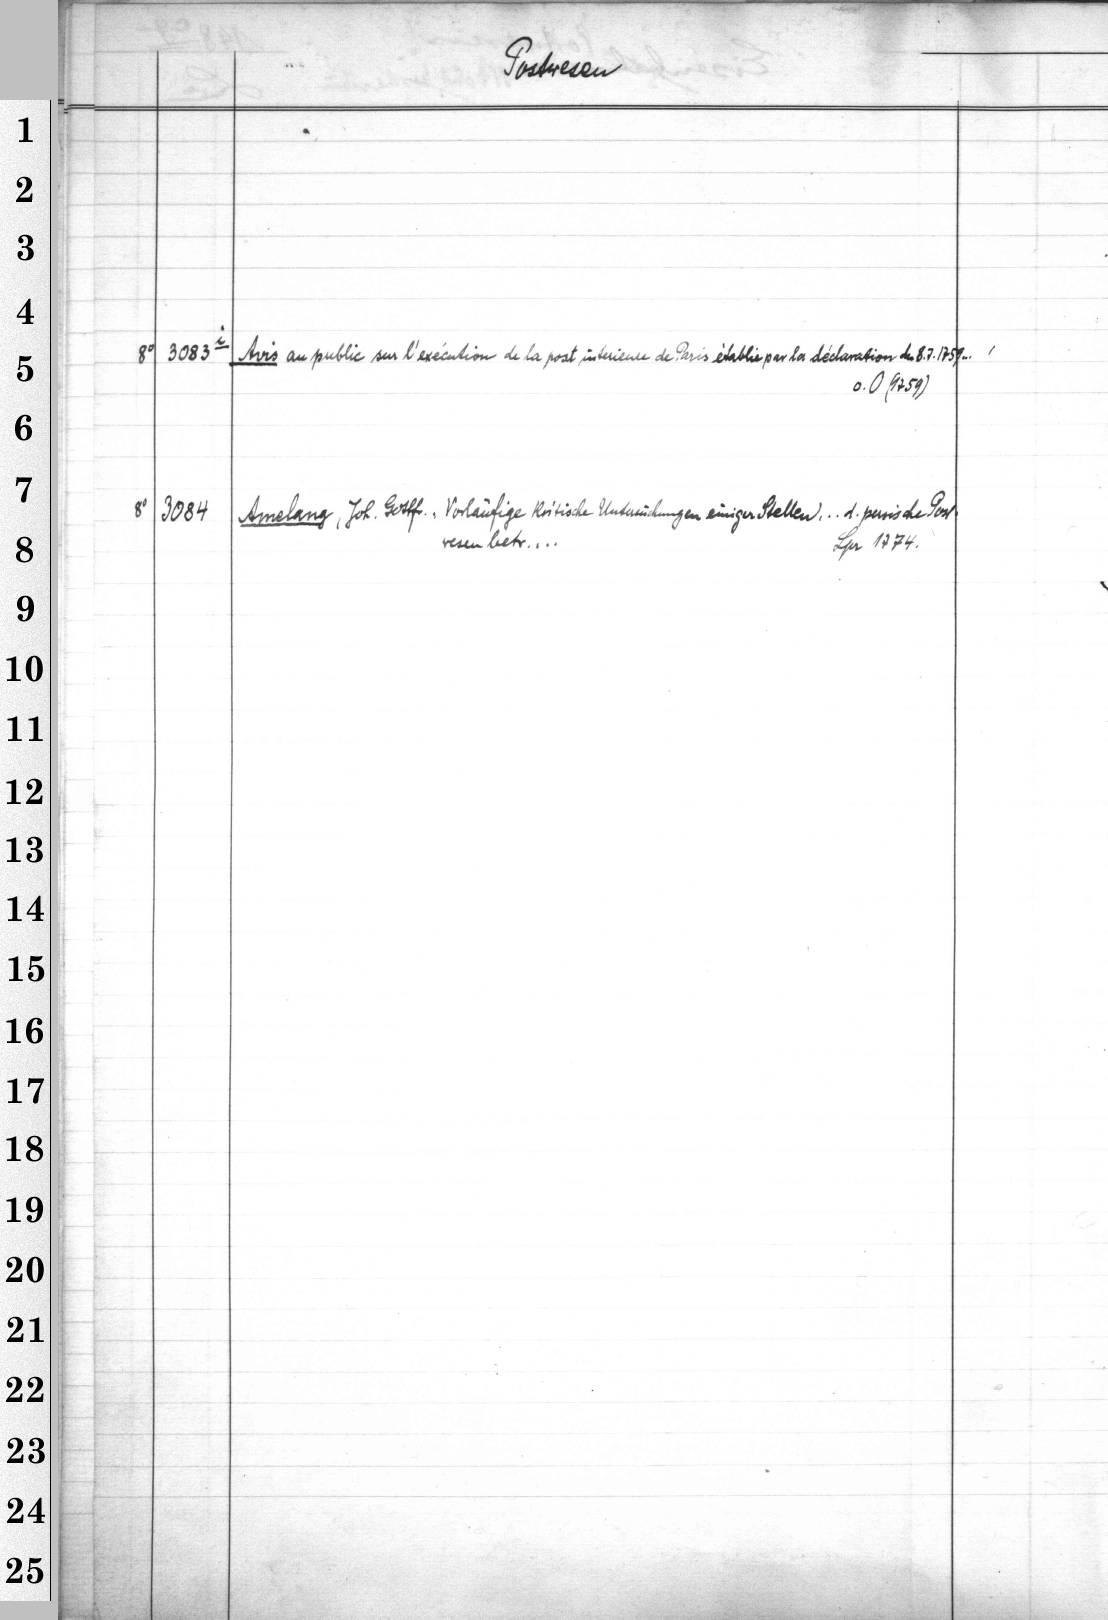 Postwesen
1
2
3
4
8° 3083 i Avis au public sur l'exécution de la post interieure de Paris établie par la déclaration du 8.7.1759...
5
o. O (1759)
6
7
8° 3084 Amelang, Joh. Gottfr., Vorläufige kritische Untersuchungen einiger Stellen ... d. persische Post-
8
wesen betr.... Lpz 1774.
9
10
11
12
13
14
15
16
17
18
19
20
21
22
23
24
25